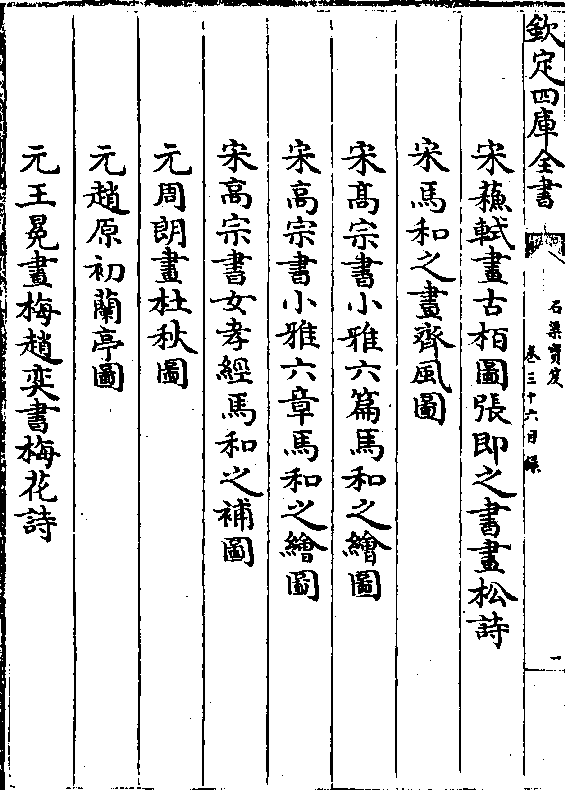 欽定四庫全書
石渠寶笈
卷三十六目錄
一
宋蘇軾畫古栢圖張即之書畫松詩
宋馬和之畫齊風圖
宋高宗書小雅六篇馬和之繪圖
宋高宗書小雅六章馬和之繪圖
宋高宗書女孝經馬和之補圖
元周朗畫杜秋圖
元趙原初蘭亭圖
元王冕畫梅趙奕書梅花詩